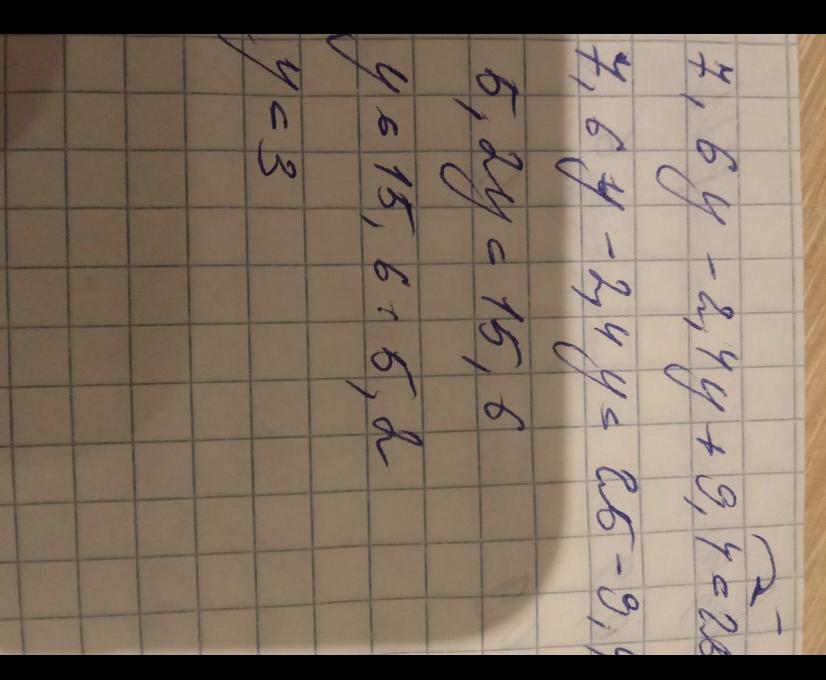 7,6y-2,4y+9,4=25
7,6y-2,4y=25-9,
5,2y=15,6
y=15,6:5,2
y=3